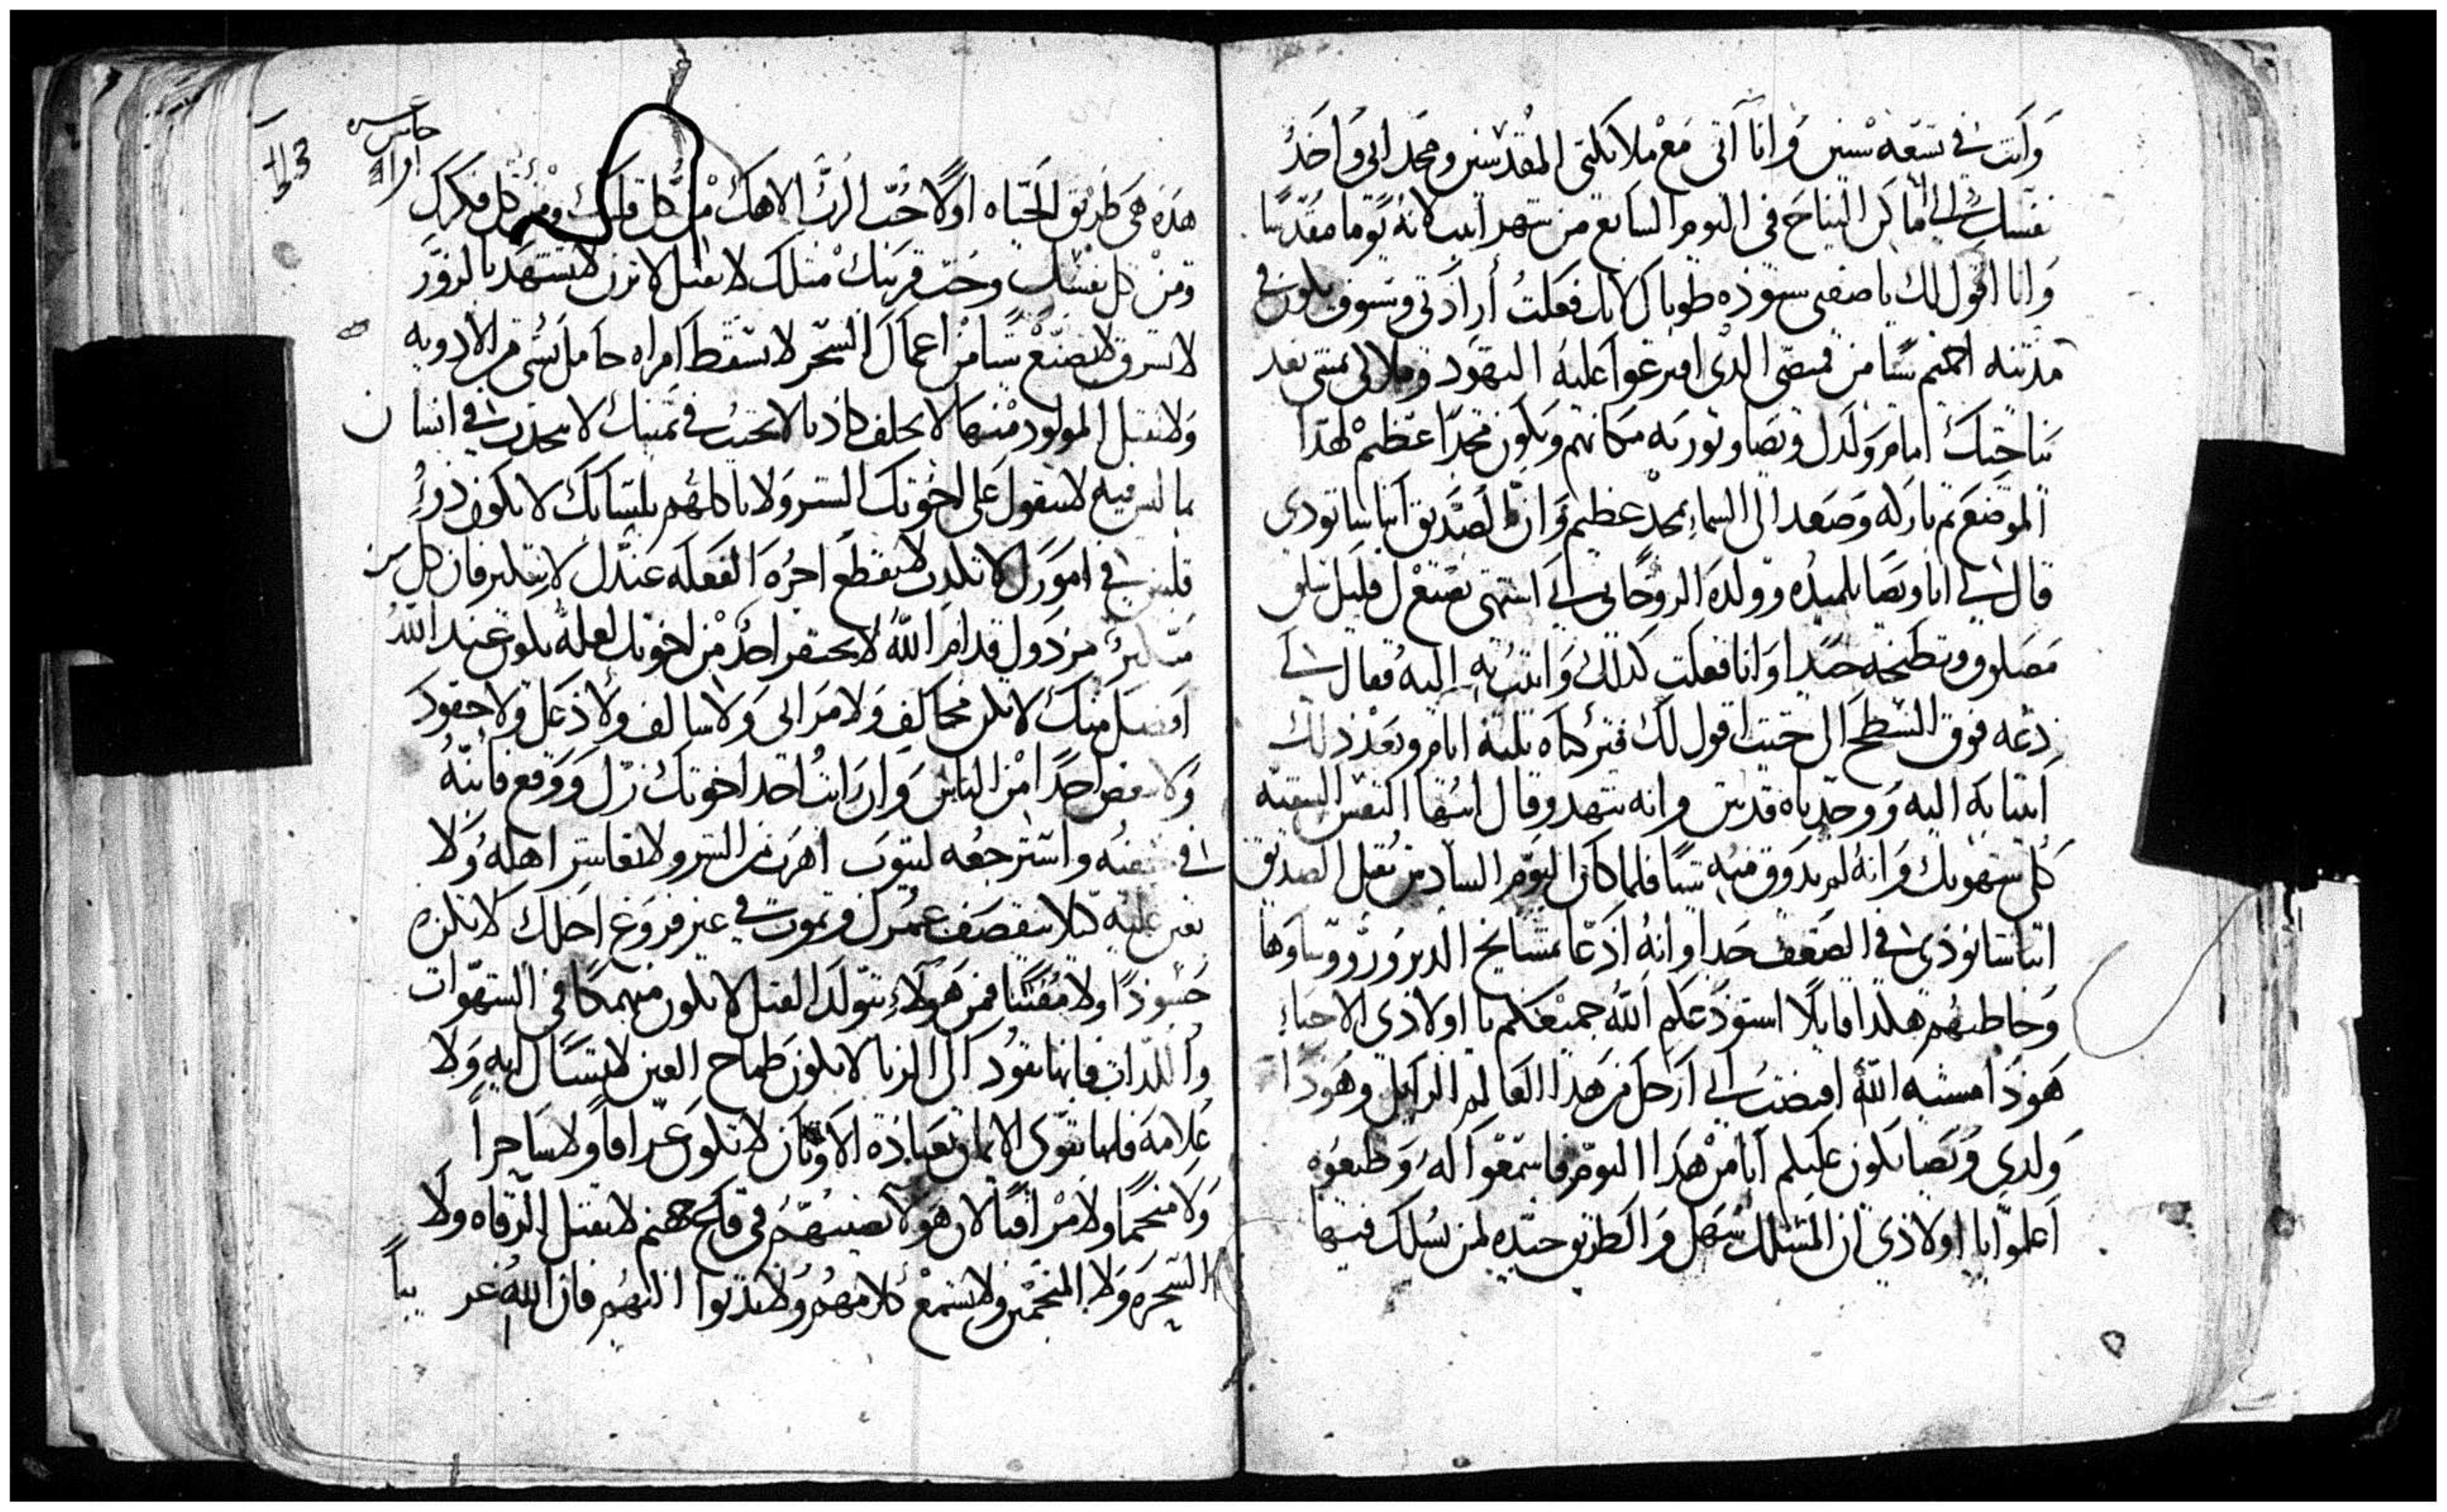 وانت في تسعه سنين وانا اتى مع ملايكتى المقدسين ومجد ابى واخذ
نفسك الى اماكن النياح في اليوم السابع من شهر ابيب لانه يوما مقدسا
وانا اقول لك يا صفيى طوباك لانك فعلت ارادتى وسوف يكون في
مدينه اخميم شيا من قميصى الذى اقترعوا عليه اليهود
نياحتك ويكون مجدا عظيم لهذا
الموضع ثم باركه وصعد الى السماء بمجد عظيم وان الصديق
قال لى انا ويصا تلميذه وولده الروحانى انى اشتهى تصنع لى قليل سلق
مصلوق وتطبخه جيدا وانا فعلت كذلك واتيت به اليه فقال لى
دعه فوق السطح الى حيت اقول لك فتركناه تلته ايام وبعد ذلك
اتينا به اليه ووجدناه قد نتن وانه تنهد وقال ايتها النفس الشقيه
كلى شهوتك وانه لم يدوق منه شيا فلما كان اليوم السادس تقبل الصديق
انبا شانودى في الضعف جدا وانه ادعا بمشايخ الدير وروساوها
وخاطبهم هكذا قايلا استودعكم الله جميعكم يا اولادى الاحباء
هودا مشيه الله افضت الى ارحل من هدا العالم الزايل وهودا
ولدى ويصا يكون عليكم ابا من هدا اليوم فاسمعوا له وطيعوه
اعلموا يا اولادى ان المسلك سهل والطريق جيده لمن يسلك فيها
هده هى طريق الحياه اولا حب الرب الاهك من كل قلبك ومن كل فكرك
ومن كل نفسك وحب قريبك متلك لا تقتل لا تزن لا تشهد بالزور
لا تسرق لا تصنع شيا من اعمال السحر لا تسقط امراه حامل بشى من الادويه
ولا تقتل المولود منها لا تحلف كاذبا لا تحنث في يمينك لا تتحدث في انسان
بما ليس فيه لا تقول على اخوتك الشر ولا تاكلهم بلسانك لا تكون ذو
قلبين في امورك لا تكذب لا تقطع اجره الفعله عندك لا تتكبر فان كل من
متكبر مرذول قدام الله لا تحتقر احد من اخوتك لعله يكون عند الله
افضل منك لا تكن مخالف ولا مرائى ولا سالف ولا دغل ولا حقود
ولا تبغض احدا من الناس وان رايت احد اخوتك زل ووقع فانبه
في خفيه واسترجعه ليتوب اهرب من الشر ولا تعاشر اهله ولا
تعن عليه كيلا ينقصف عمرك وتموت في غير فروغ اجلك لا تكن
حسودا ولا مفتنا فمن هولاء يتولد القتل لا تكون منهمكا في الشهوات
واللدات فانها تقود الى الزنا لا تكون طماح العين لا تسال ايه ولا
علامه فانها تقوى الايمان بعباده الاوتان لا تكون عرافا ولا ساحرا
ولا منجما ولا مراقبا لان هولا نصيبهم في قاع جهنم لا تقبل الرقاه ولا
السحره ولا المنجمين ولا تسمع كلامهم ولا تدنوا اليهم فان الله غريبا